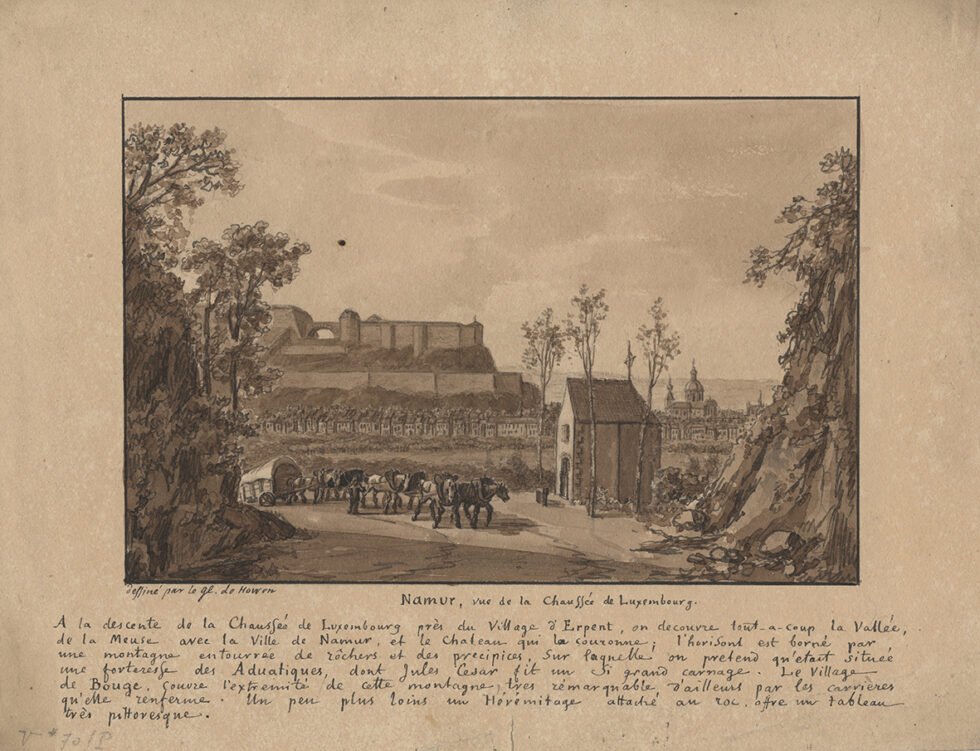 dessiné par le gl. de Howen
Namur, vue de la Chaussée de Luxembourg.
A la descente de la Chaussée de Luxembourg près du Village d'Erpent, on decouvre tout-a-coup la Vallée,
de la Meuse avec la Ville de Namur, et le Chateau qui la couronne; l'horisont est borné par
une montagne entourrée de rôchers et des precipices, Sur laquelle on pretend qu'etait située
une forteresse des Aduatiques, dont Jules Cesar fit un Si grand carnage. Le Village
de Bouge, couvre l'extremité de cette montagne, très rémarquable d'ailleurs par les carrières
qu'elle renferme. Un peu plus loins un Heremitage attaché au roc, offre un tableau
très pittoresque.